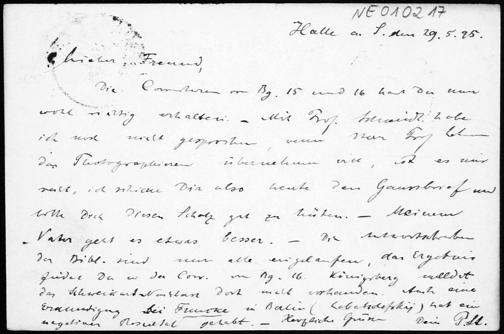 NE010217
Halle a. S. den 29.5.95.
Lieber Freund,
Die Correkturen von Bg. 15 und 16 hast Du nun
wohl richtig erhalten. – Mit Prof. Schmidt habe
ich noch nicht gesprochen, wenn Herr Prof
das Photographieren übernehmen will, ist es mir
recht, ich schicke Dir also heute den Gaussbrief und
bitte Dich diesen Schatz gut zu hüten. – Meinem
Vater geht es etwas besser. – Die Antwortschreiben
der Bibl. sind nun alle eingelaufen, das Ergebnis
findest Du in der Corr. von Bg. 16. Königsberg meldet
das Schweikart dort nicht vorhanden. Auch eine
Erkundigung bei in Berlin hat ein
negatives Resultat gehabt. – Herzliche Grüsse Dein P. St.